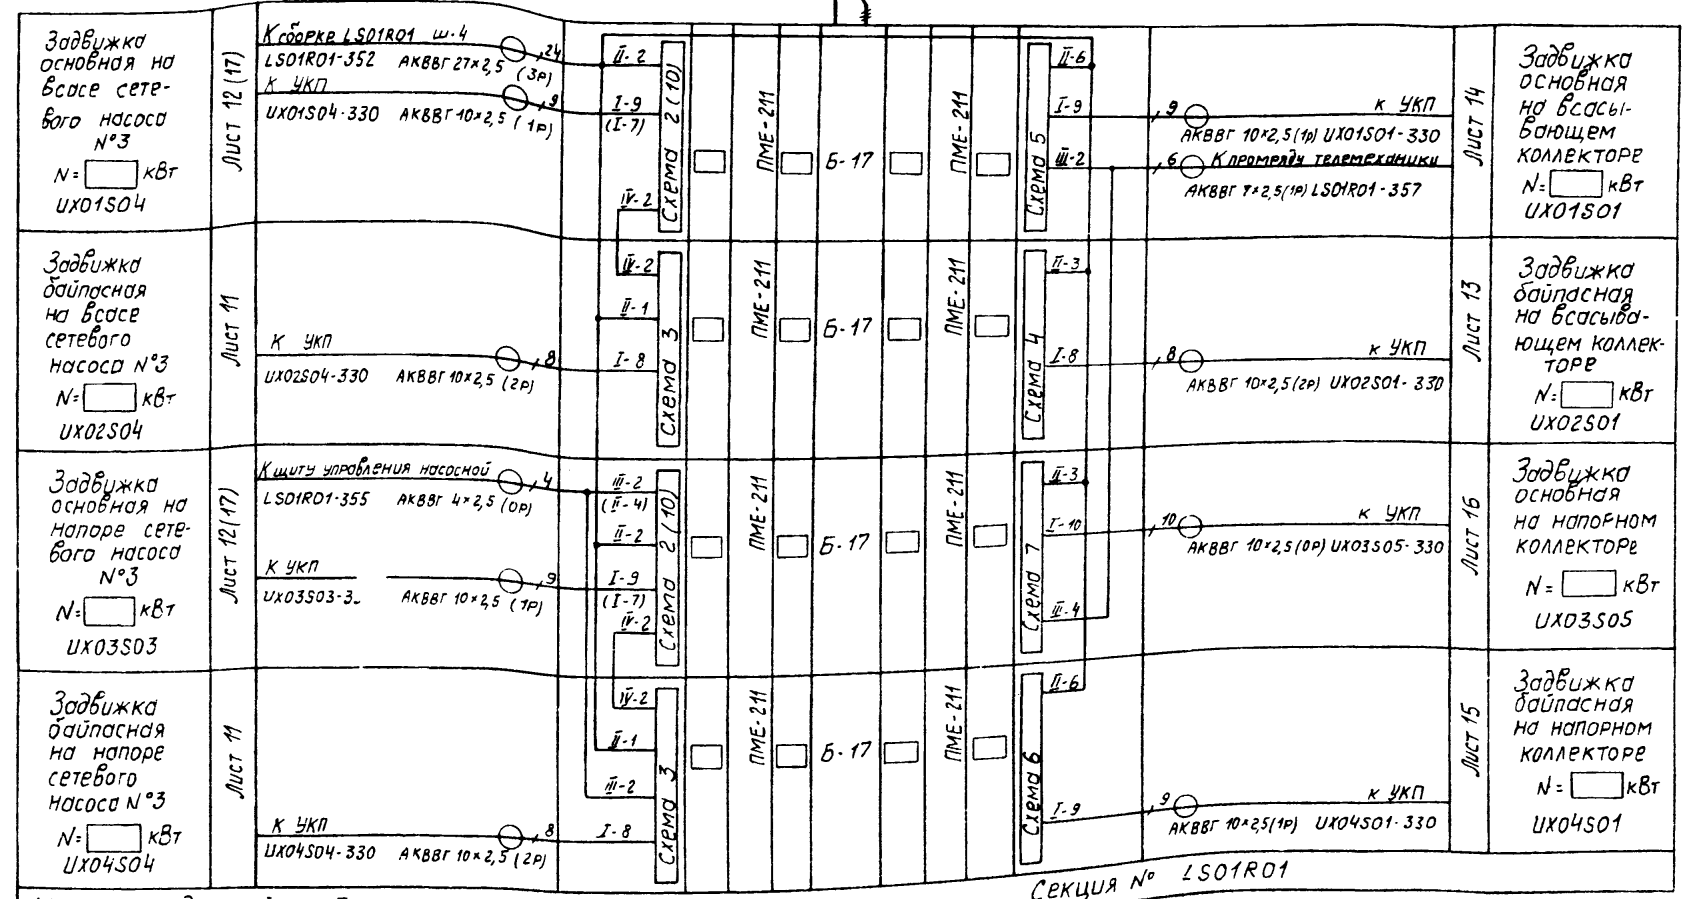 Задвижка
основная на
всасе сете-
вого насоса
N°3
N= кВт
UX01S04
Лист 12(17)
К сборке LS01R01 ш-4
24
LS01R01-352 АКВВГ 27×2,5 (3Р)
К УКП
9
UX01S04-330 АКВВГ 10×2,5 (1Р)
II-2
I-9
(I-7)
IV-2
Схема 2 (10)
ПМЕ-211
Б-17
ПМЕ-211
Схема 5
II-6
I-9
III-2
9
к УКП
АКВВГ 10×2,5(1р) UX01S01-330
6
К промряду телемеханики
АКВВГ 7×2,5(1Р) LS01R01-357
Лист 14
Задвижка
основная
на всасы-
вающем
коллекторе
N= кВт
UX01S01
Задвижка
байпасная
на всасе
сетевого
насоса N°3
N= кВт
UX02S04
Лист 11
К УКП
8
UX02S04-330 АКВВГ 10×2,5 (2Р)
IV-2
II-1
I-8
Схема 3
ПМЕ-211
Б-17
ПМЕ-211
Схема 4
II-3
I-8
8
к УКП
АКВВГ 10×2,5(2Р) UX02S01-330
Лист 13
Задвижка
байпасная
на всасыва-
ющем коллек-
торе
N= кВт
UX02S01
Задвижка
основная на
напоре сете-
вого насоса
N°3
N= кВт
UX03S03
Лист 12(17)
К щиту управления насосной
4
LS01R01-355 АКВВГ 4×2,5 (0Р)
К УКП
9
UX03S03-3 АКВВГ 10×2,5 (1Р)
III-2
(II-4)
II-2
I-9
(I-7)
IV-2
Схема 2 (10)
ПМЕ-211
Б-17
ПМЕ-211
Схема 7
II-3
I-10
III-4
10
к УКП
АКВВГ 10×2,5(0Р) UX03S05-330
Лист 16
Задвижка
основная
на напорном
коллекторе
N= кВт
UX03S05
Задвижка
байпасная
на напоре
сетевого
насоса N°3
N= кВт
UX04S04
Лист 11
К УКП
8
UX04S04-330 АКВВГ 10×2,5 (2Р)
IV-2
II-1
III-2
I-8
Схема 3
ПМЕ-211
Б-17
ПМЕ-211
Схема 6
II-6
I-9
9
к УКП
АКВВГ 10×2,5(1Р) UX04S01-330
Лист 15
Задвижка
байпасная
на напорном
коллекторе
N= кВт
UX04S01
Секция N° LS01R01